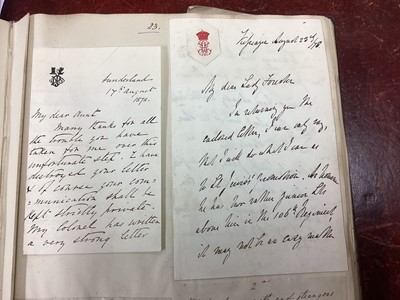 23.
Sunderland
17th August
1870.
My dear Aunt
Many thanks for all
the trouble you have
taken for me over this
unfortunate step. I have
destroyed your letter
& of course your com-
-munication shall be
kept strictly private
My Colonel has written
a very strong letter
August 22nd
/78
My dear Lady Forester
In returning you the
enclosed letter, I can only say,
that I will do what I can as
to Lt promotion. As however
he has two rather junior Lts
above him in the 106th Regiment
it may not be an easy matter
2
and strangers